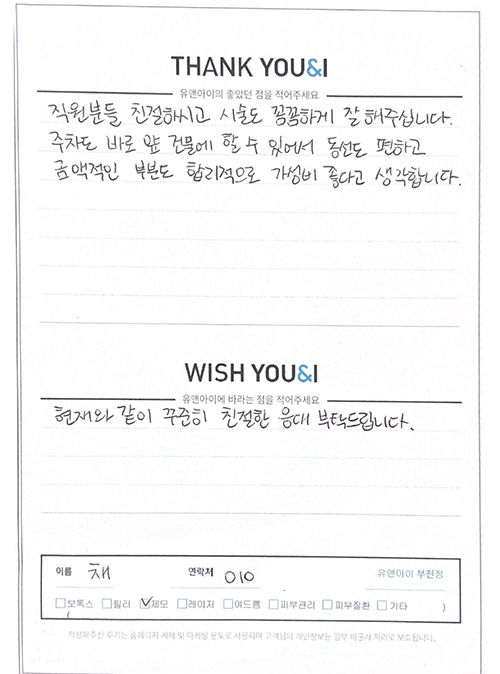 THANK YOU&I
유앤아이의 좋았던 점을 적어주세요
직원분들 친절하시고 시술도 꼼꼼하게 잘 해주십니다.
주차도 바로 앞 건물에 할 수 있어서 동선도 편하고
금액적인 부분도 합리적으로 가성비 좋다고 생각합니다.
WISH YOU&I
유앤아이에 바라는 점을 적어주세요
현재와 같이 꾸준히 친절한 응대 부탁드립니다.
이름 채 연락처 010 유앤아이 부천점
□보톡스 □필러 ☑제모 □레이저 □여드름 □피부관리 □피부질환 □기타 )
(
작성해주신 후기는 홈페이지 게재 및 마케팅 용도로 사용되며 고객님의 개인정보는 일부 비공개 처리로 보호됩니다.